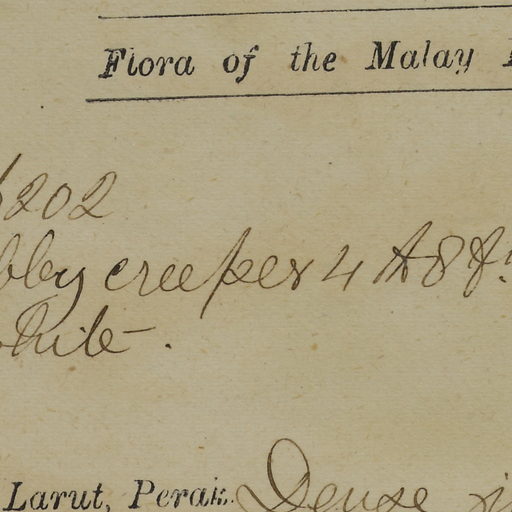 Flora of the Malay
202
creeper 4 to 8 ft
white.
Larut, Perak. Dense